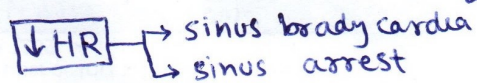 ↓HR → sinus bradycardia
→ sinus arrest